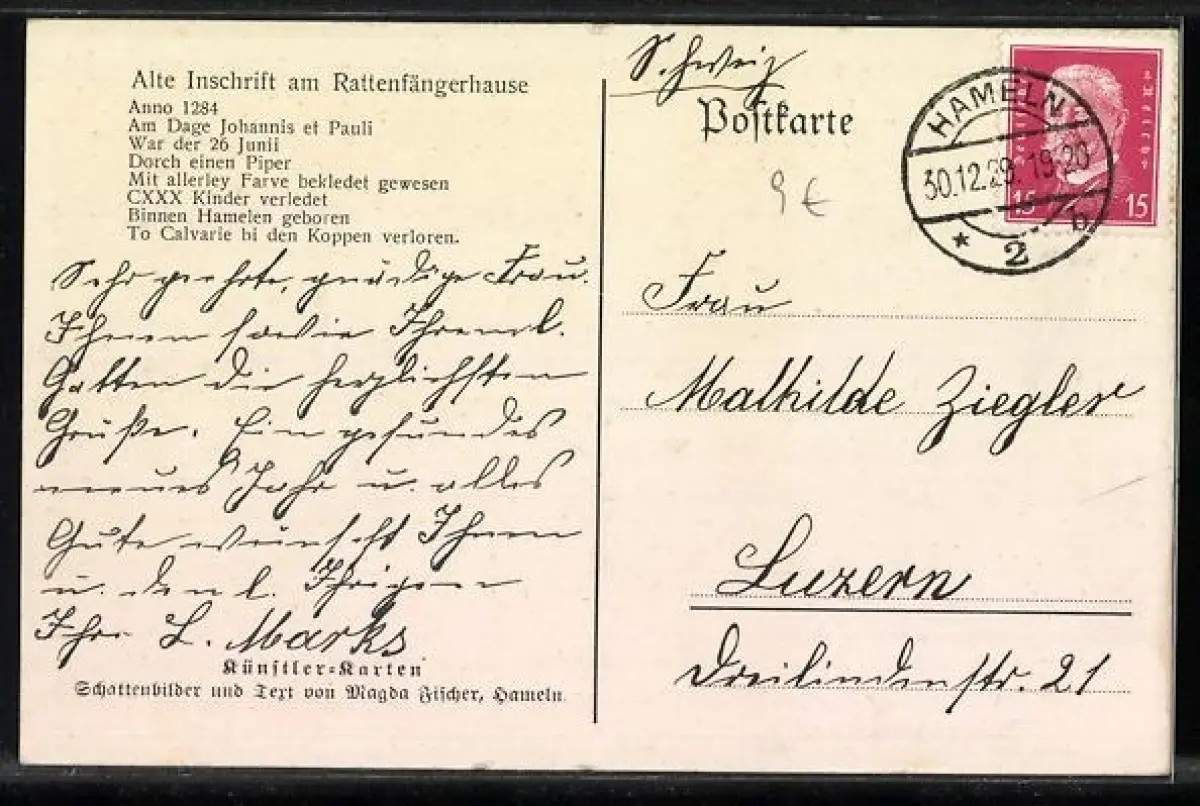 Alte Inschrift am Rattenfängerhause
Anno 1284
Am Dage Johannis et Pauli
War der 26 Junii
Dorch einen Piper
Mit allerley Farve bekledet gewesen
CXXX Kinder verledet
Binnen Hamelen geboren
To Calvarie bi den Koppen verloren.
Sehr geehrte, gnädige Frau.
Ihnen sowie Ihrem l.
Gatten die herzlichsten
Grüße. Ein gesundes
neues Jahr u. alles
Gute wünscht Ihnen
u. den l. Ihrigen
Ihre L. Marks
Künstler=Karten
Schattenbilder und Text von Magda Fischer, Hameln
Schweiz
Postkarte
9 €
HAMELN
30.12.29. 19-20
* 2 b
Deutsches Reich
15 15
Frau
Mathilde Ziegler
Luzern
Dreilindenstr. 21